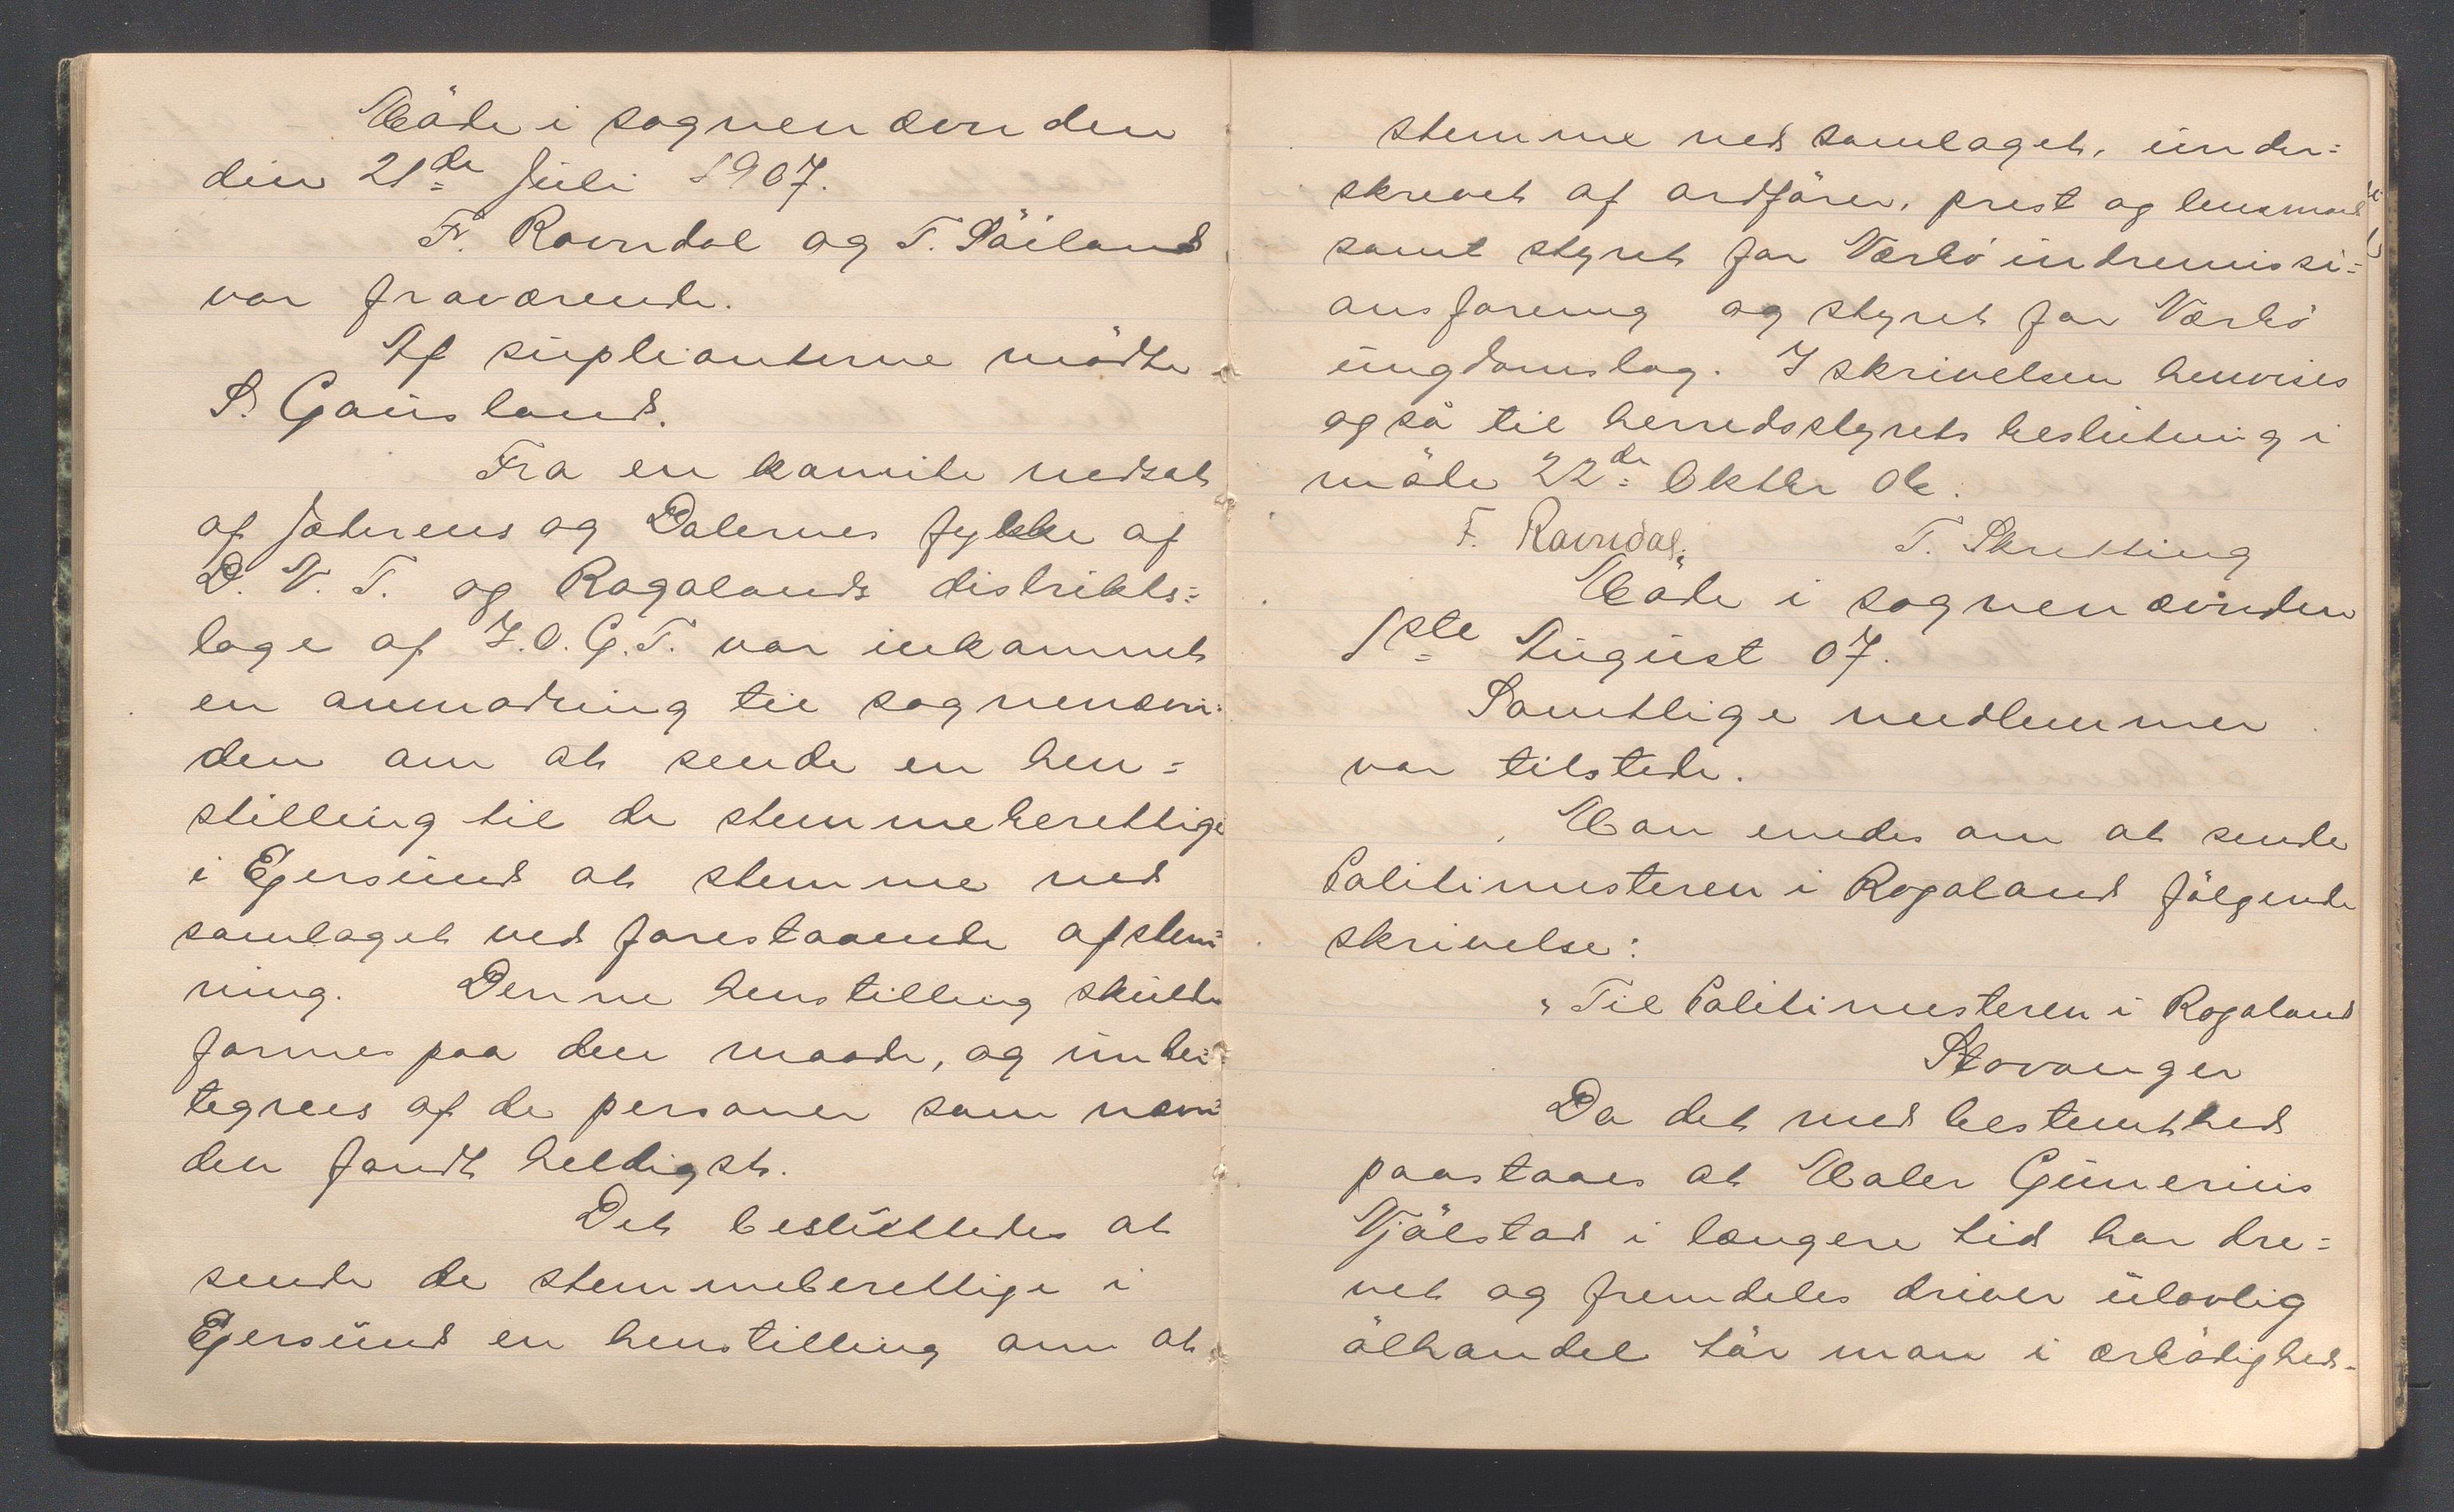 Möde i sognenævnden
den 21de Juli 1907.
Fr. Ravndal og T. Söiland
var fraværende.
Af suplianterne mödte
S. Gausland.
Fra en komite nedsat
af Jæderens og Dalernes fylkke af
D. N. T. og Rogalands distrikts=
lage af I.O.G.T. var inkommet
en anmodning til sognenævn=
den om at sende en hen=
stilling til de stemmeberettige
i Egersund at stemme ned
samlaget ved forestaaende afstem=
ning. Denne henstilling skulde
formes paa den maade, og under=
tegnes af de personer som nævn=
den fandt heldigst.
Det besluttedes at
sende de stemmeberettige i
Egersund en henstilling om at
stemme ned samlaget, under=
skrevet af ordförer, prest og lensmand
samt styret for Nærbö indremissi=
onsforening og styret for Nærbö
ungdomslag. I skrivelsen henvises
også til herredsstyrets beslutning i
möde 22de Oktbr 06.
F. Ravndal. T. Skretting
Möde i sognenævnden
1ste August 07.
Samtlige medlemmer
var tilstede.
Man enedes om at sende
Politimesteren i Rogaland fölgende
skrivelse:
"Til Politimesteren i Rogaland
Stavanger
Da det med bestemthed
paastaaes at Maler Gunerius
Njålstad i længere tid har dre=
vet og fremdeles driver ulovlig
ölhandel tör man i ærbödighed=